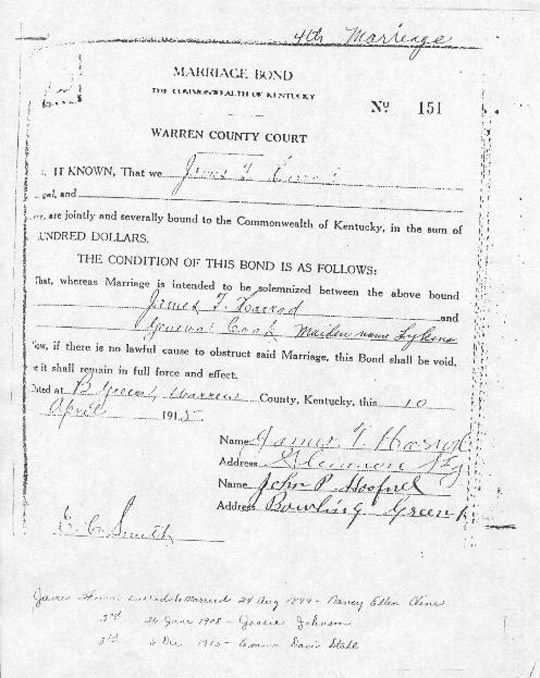 4th Marriage
MARRIAGE BOND
THE COMMONWEALTH OF KENTUCKY
No 151
WARREN COUNTY COURT
IT KNOWN, That we James T
pal, and
are jointly and severally bound to the Commonwealth of Kentucky, in the sum of
UNDRED DOLLARS.
THE CONDITION OF THIS BOND IS AS FOLLOWS:
That, whereas Marriage is intended to be solemnized between the above bound
James T. Harrod and
Cook Maiden name Lykens
ow, if there is no lawful cause to obstruct said Marriage, this Bond shall be void,
e it shall remain in full force and effect.
ated at B Green, Warren County, Kentucky, this 10
April 1915
Name James T. Harrod
Address Ky
Name John P. Hoofnel
Address Bowling Green K
E. C. Smith
James Married 24 Aug 1899 - Nancy Ellen Cline
2nd 26 June 1908 - Johnson
3rd 6 Dec 1913 - Emma Davis Stahl